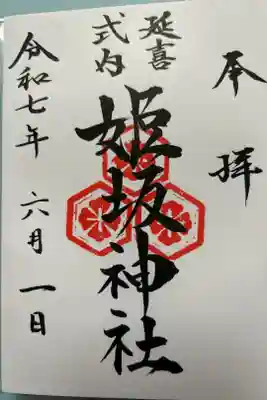 奉拝
延喜
式内
姫坂神社
令和七年 六月 一日